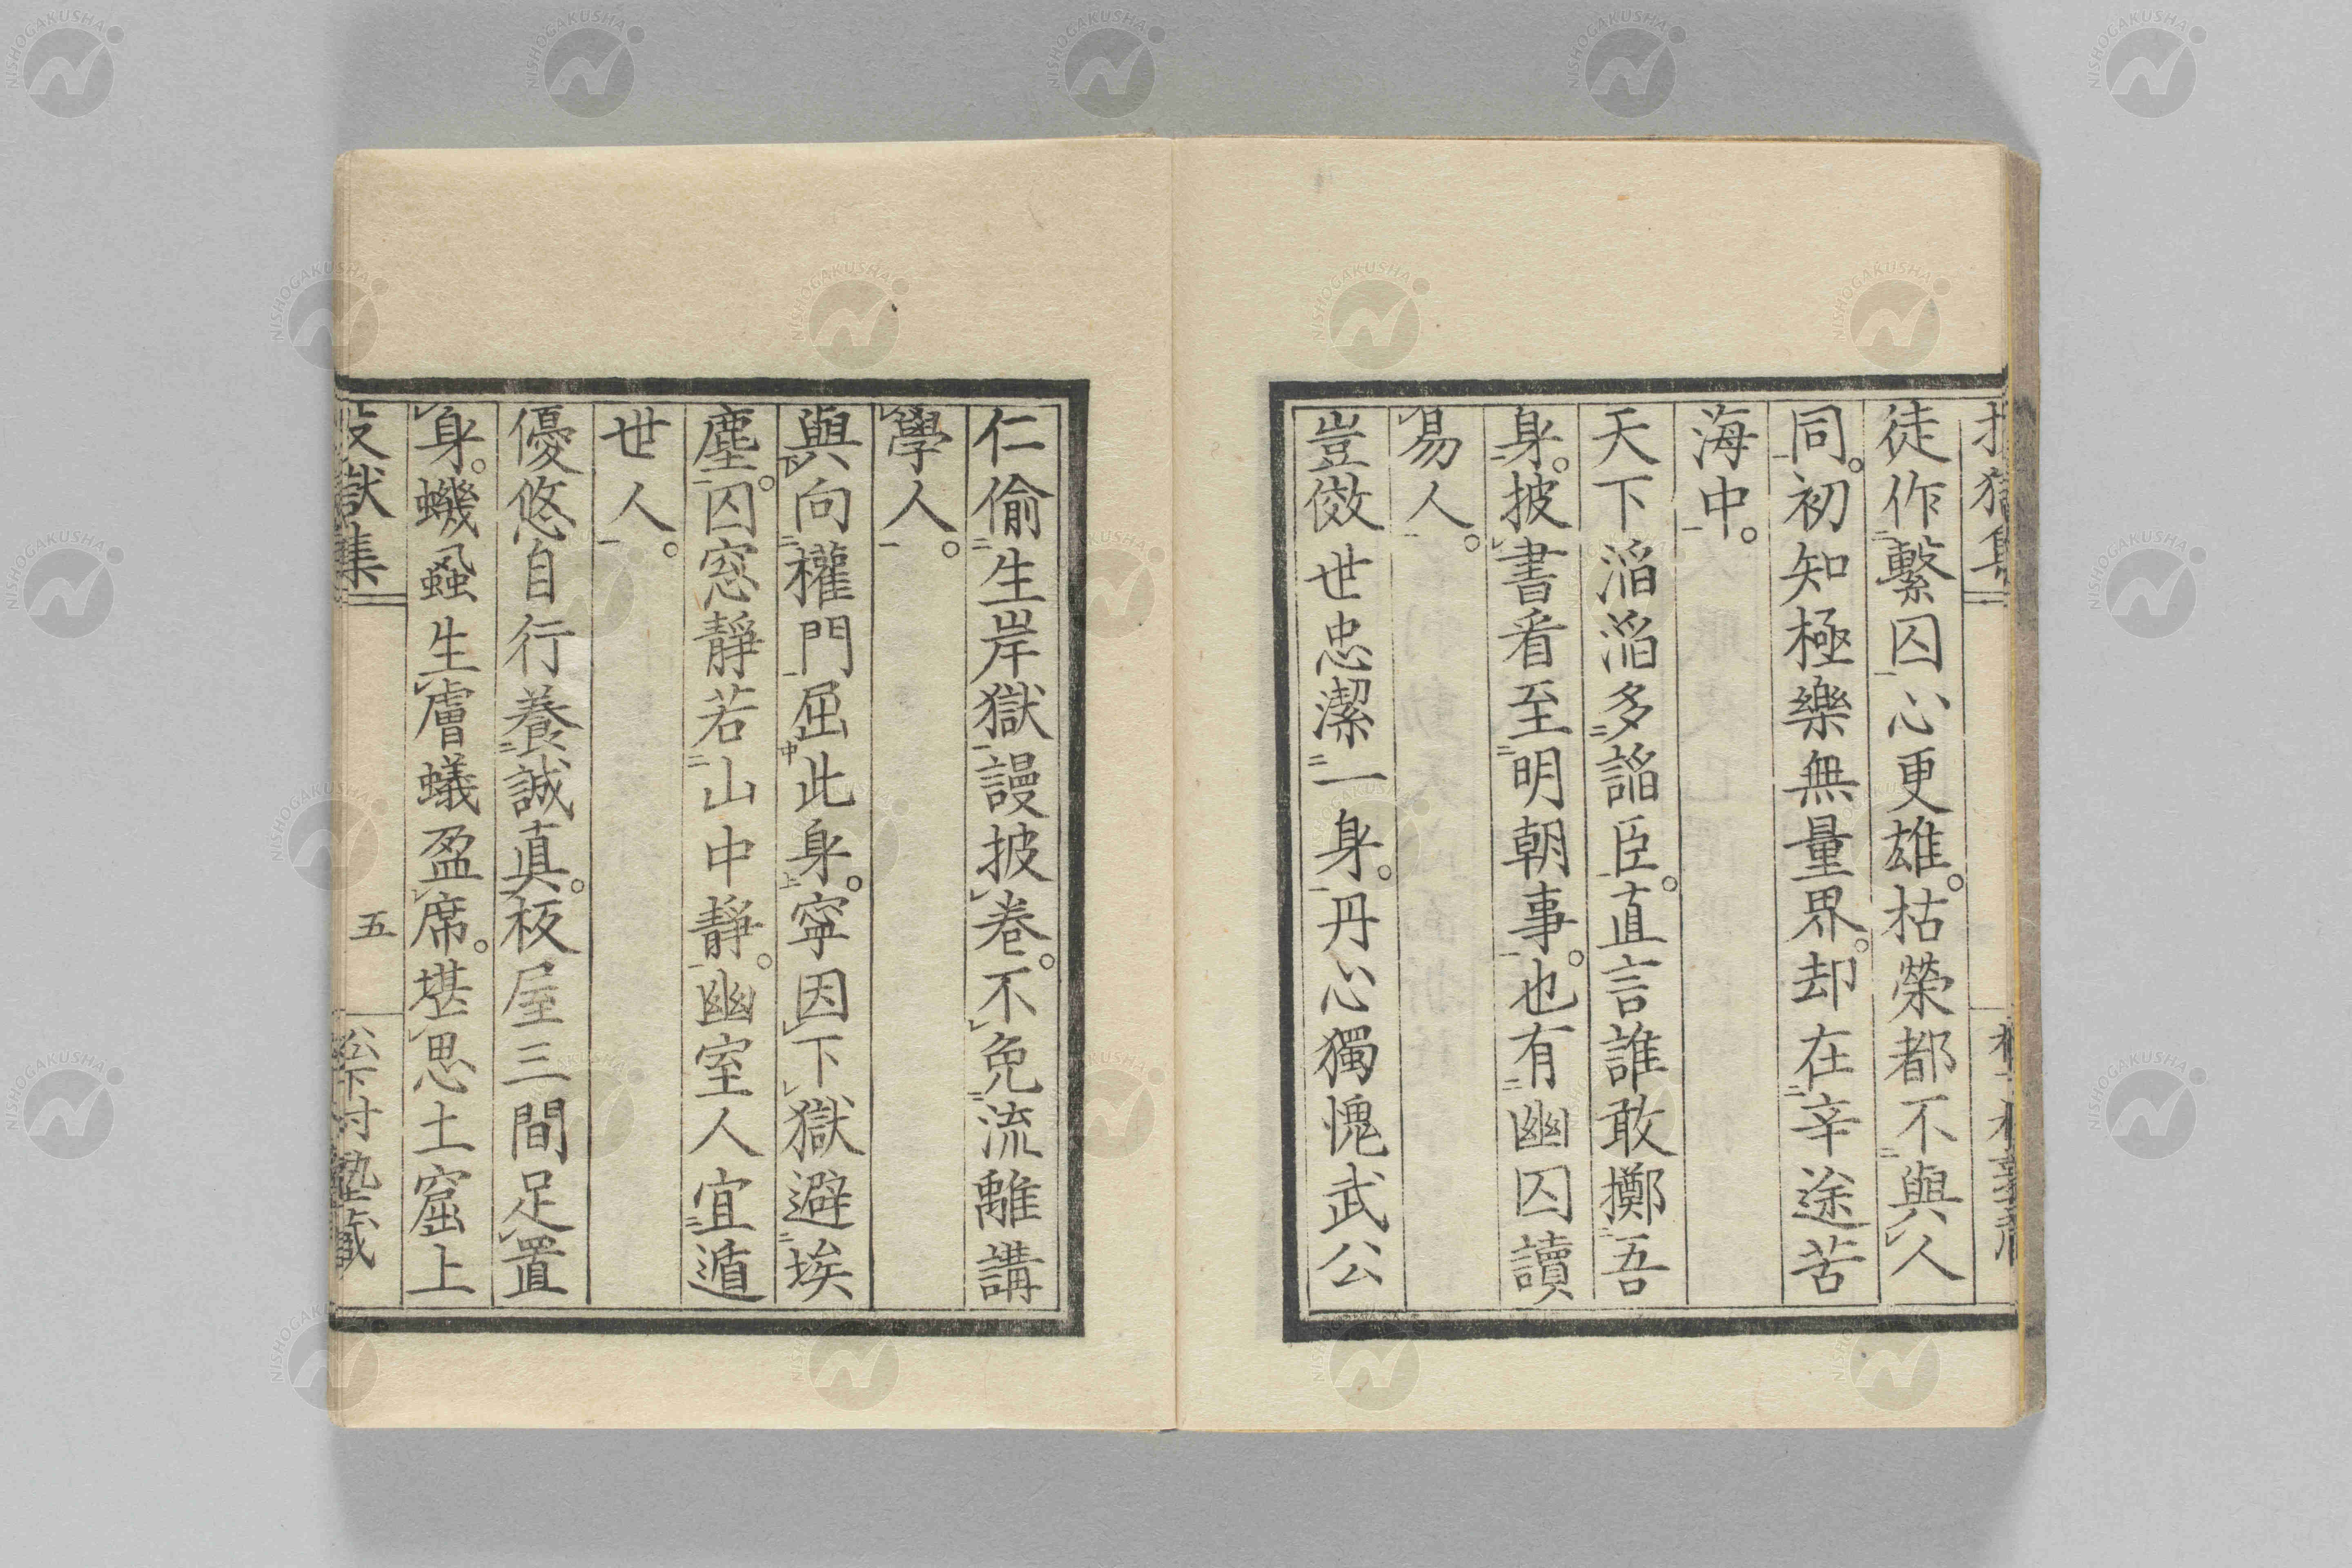 徒作繫囚心更雄。枯榮都不與人
同。初知極樂無量界。却在辛途苦
海中。
天下滔滔多諂臣。直言誰敢擲吾
身。披書看至明朝事。也有幽囚讀
易人。
豈倣世忠潔一身。丹心獨愧武公
仁偷生岸獄謾披卷。不免流離講
學人。
與向權門屈此身。寧因下獄避埃
塵。囚窓靜若山中靜。幽室人宜遁
世人。
優悠自行養誠真。板屋三間足置
身。蟣蝨生膚蟻盈席。堪思土窟上
投獄集
五
松下村塾藏
NISHOGAKUSHA